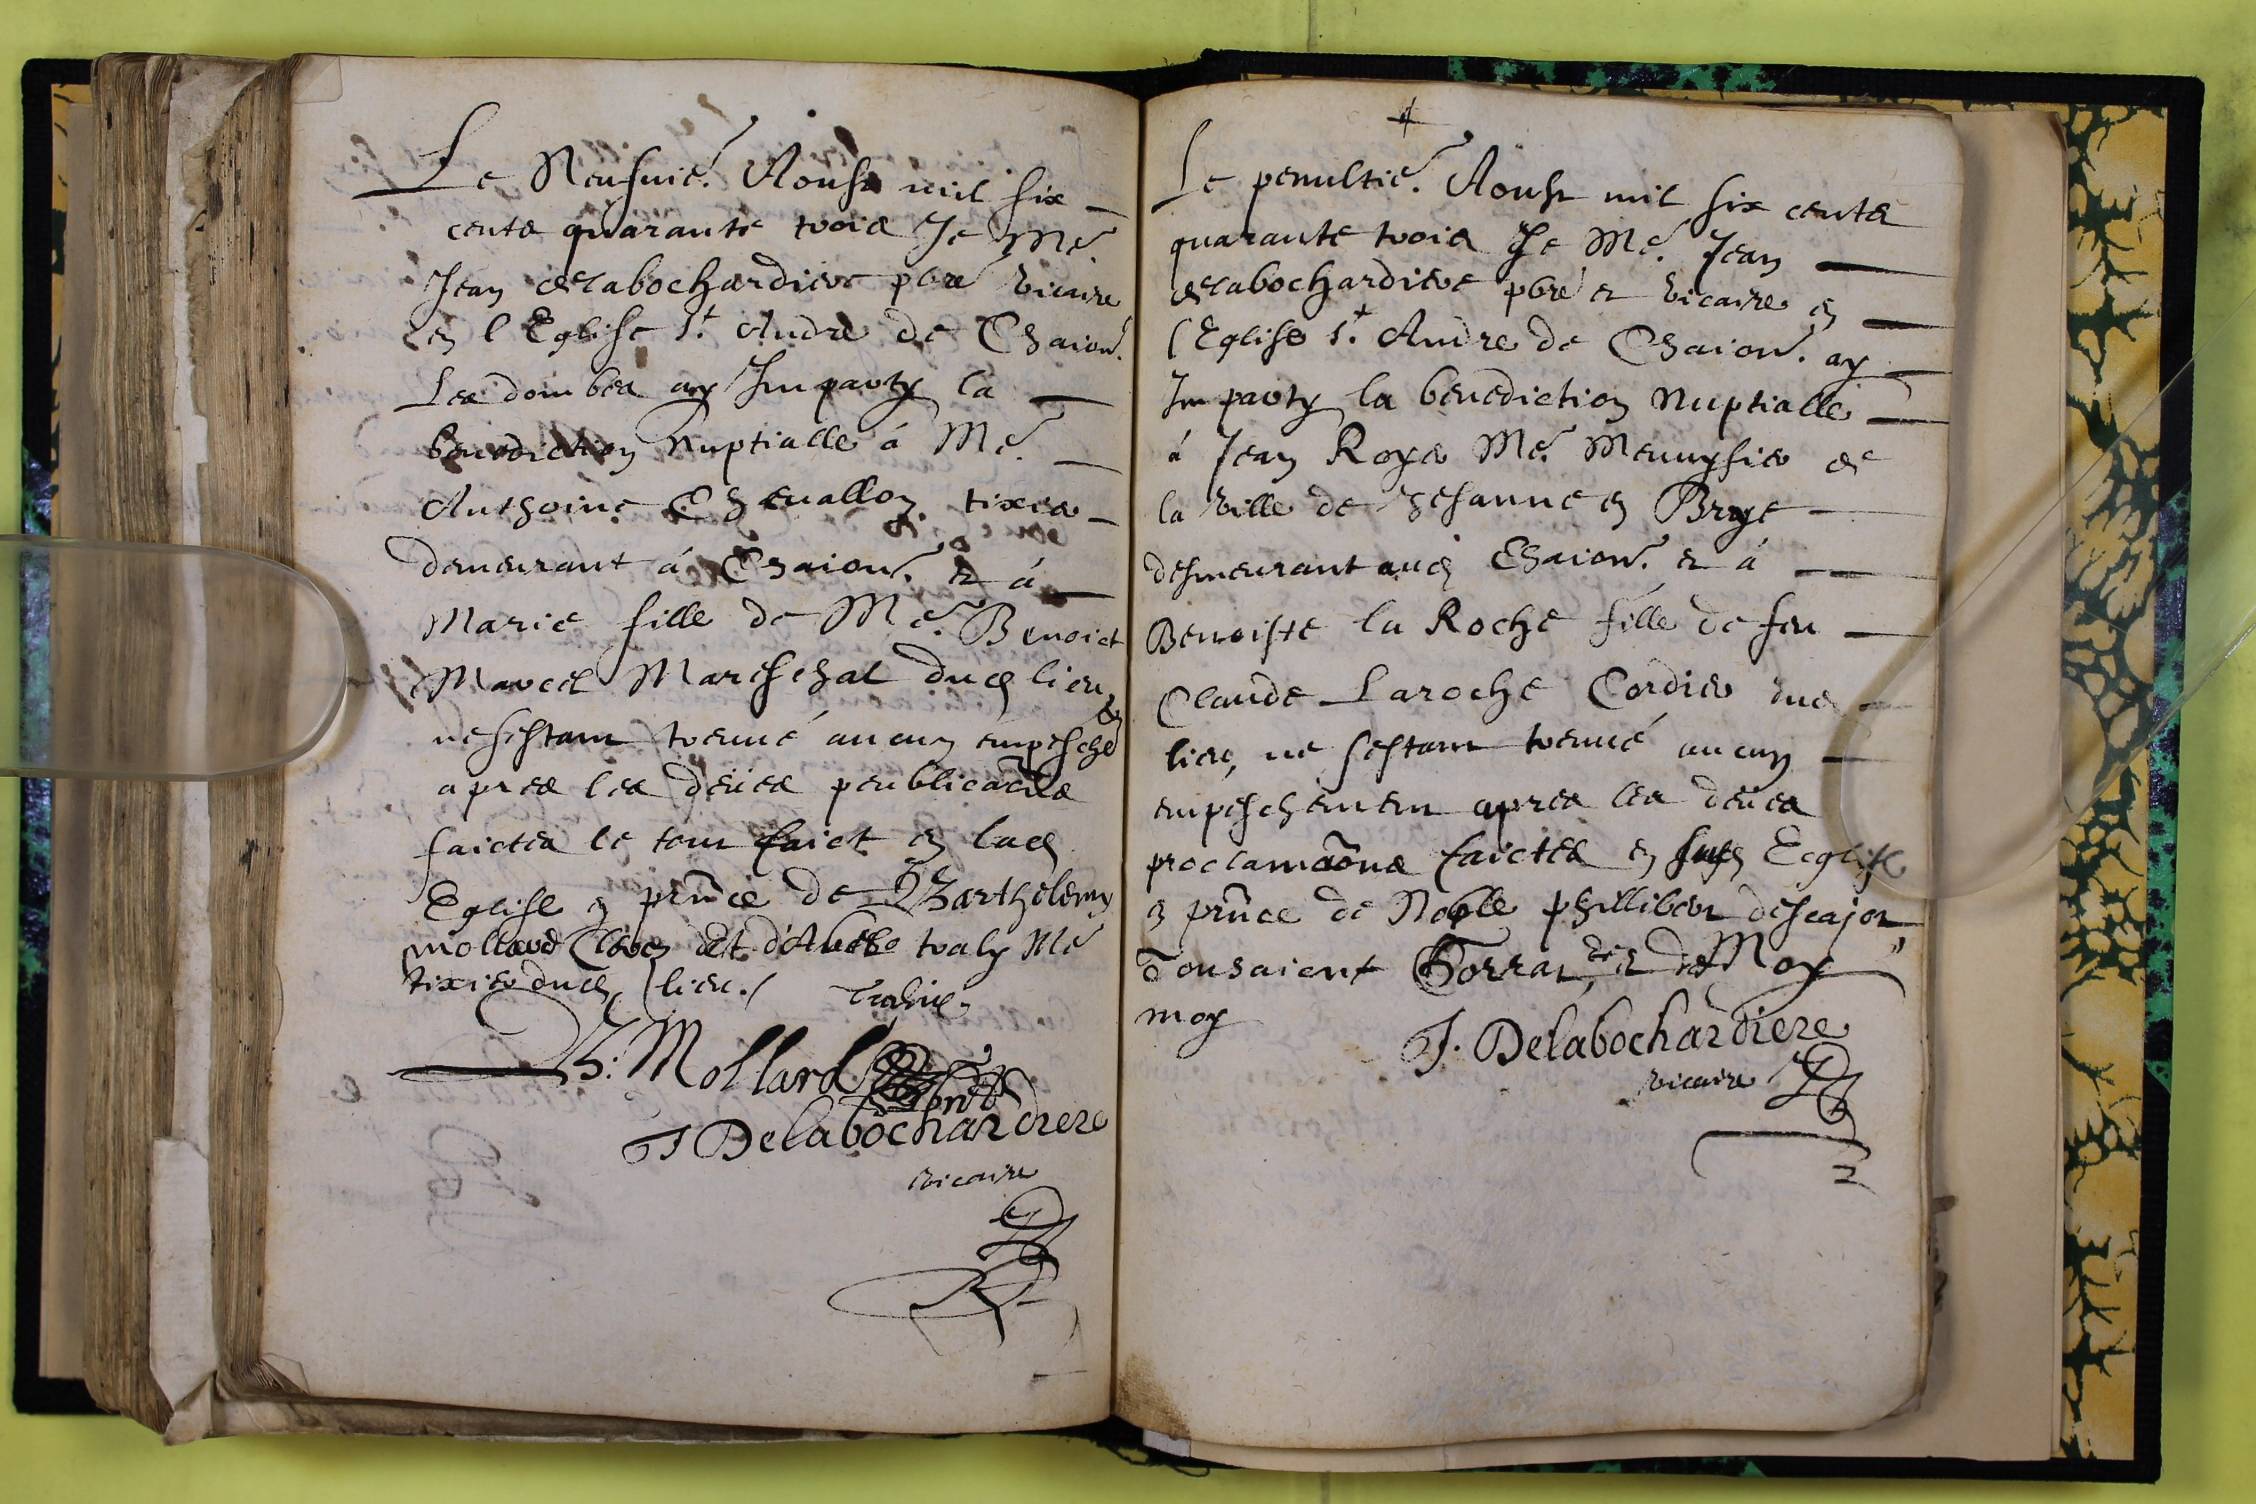 Le Neufvie. Aoust mil six
cents quarante trois Je Me.
Jean delabochardiere pbre vicaire
en l'Eglise St. André de Chaion.
Les dombes ay Imparty la
benediction Nuptialle á Me.
Anthoine Chevallon tixier
demeurant á Chaion. et á
Marie fille de Me. Benoict
Marcel Mareschal dud lieu,
ne sestant treuvé aucun empesche
apres les deües peublicaons
faictes le tout faict en lad
Eglise en pnce de Barthelemy
mollard Clerc et Me
tixier dud lieu.
B. Mollard
J Delabochardiere
vicaire
Le penultie. Aoust mil six cents
quarante trois Je Me. Jean
delabochardiere pbre et vicaire en
l'Eglise St. Andre de Chaion. ay
Imparty la benediction Nuptialle
á Jean Roye Me. Menuysier de
la ville de Zesanne en Brye
desmeurant aud Chaion. et á
Benoiste la Roche fille de feu
Claude Laroche Cordier dud
lieu, ne sestant treuvé aucun
empeschement apres les deües
proclamaons faictes en Ecglise
en pnce de Noble phillibert
Tousaient et de Moy
moy
J. Delabochardiere
vicaire